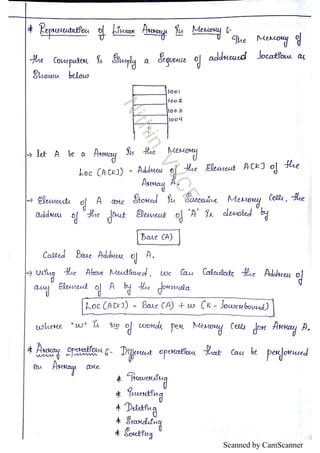 * Representation of Linear Arrays in Memory :-
The Memory of
the Computer is Simply a Sequence of addressed locations as
Shown below
1001
1002
1003
1004
→ let A be a Array in the Memory
Loc (A[K]) = Address of the Element A[K] of the
Array A.
→ Elements of A are Stored in Successive Memory Cells, the
address of the first Element of 'A' is denoted by
Base (A)
Called Base Address of A.
→ Using the Above Mentioned, we Can Calculate the Address of
any Element of A by the formula
Loc (A[K]) = Base (A) + w (K - lowerbound)
where "w" is no of words per Memory Cell for Array A.
* Array operations :- Different operations that Can be performed
on Array are
* Traversing
* Inserting
* Deleting
* Searching
* Sorting
Scanned by CamScanner